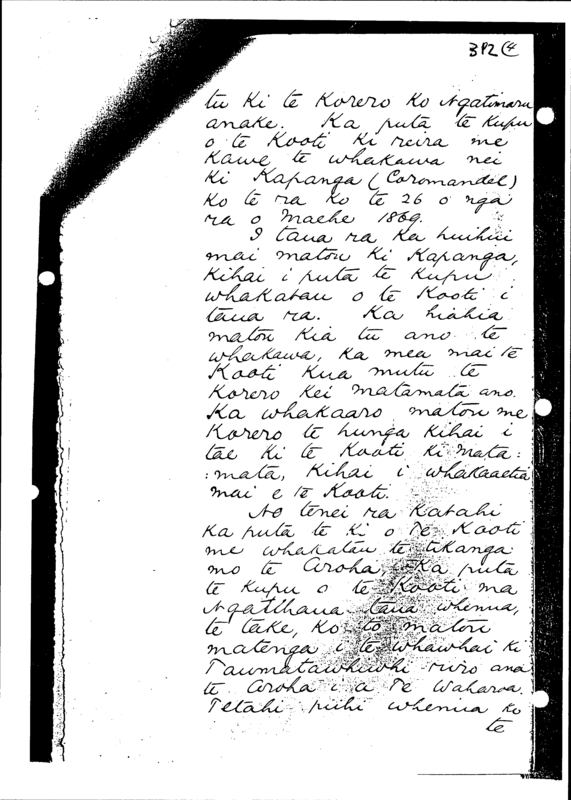 BP2 (4
tu ki te Korero ko Ngatimaru
anake. Ka puta te Kupu
o te Kooti ki reira me
Kawe te whakawa nei
ki Kapanga (Coromandel)
ko te ra ko te 26 o nga
ra o Maehe 1869.
I taua ra ka huihui
mai matou ki Kapanga,
kihai i puta te Kupu
whakatau o te Kooti i
taua ra. Ka hiahia
matou kia tu ano te
whakawa, ka mea mai te
Kooti kua mutu te
Korero kei matamata ano.
Ka whakaaro matou me
Korero te hunga kihai i
tae ki te Kooti ki mata:
:mata, kihai i whakaaetia
mai e te Kooti.
No tenei ra Katahi
ka puta te ki o Te Kooti
me whakatau te tikanga
mo te Aroha, Ka puta
te kupu o te Kooti ma
Ngatihaua taua whenua,
te take, ko to matou
matenga i te whawhai ki
Taumatawhiwhi riro ana
te Aroha i a Te Waharoa.
Tetahi piihi whenua ko
te